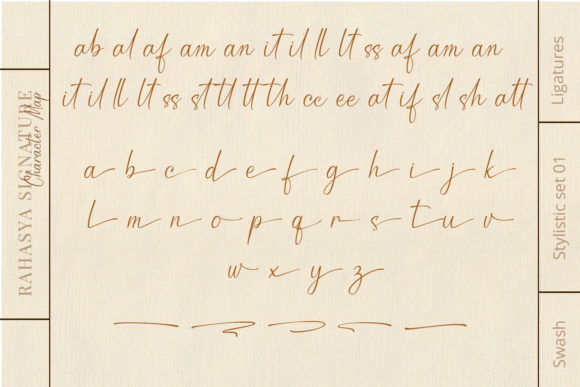 ab al af am an it il ll lt ss af am an
it il ll lt ss st tl tt th cc ee at if sl sh att
a b c d e f g h i j k
l m n o p q r s t u v
w x y z
RAHASYA SIGNATURE
Character Map
Ligatures
Stylistic set 01
Swash